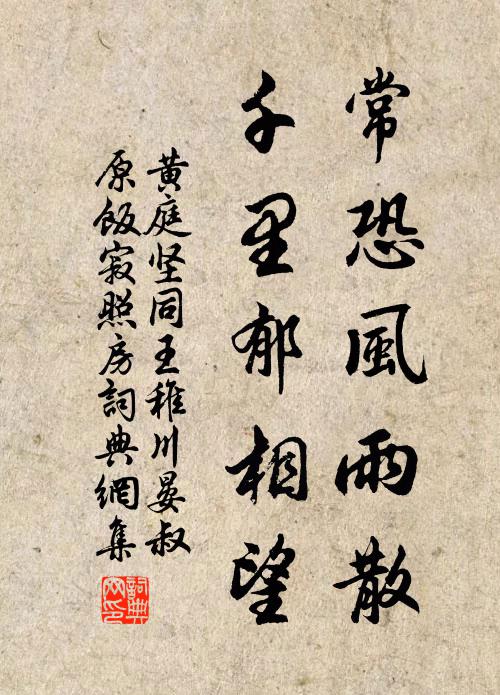 常恐風雨散
千里郁相望
黄庭坚同王稚川晏叔
原飯寂照房詞典網集
詞典网印